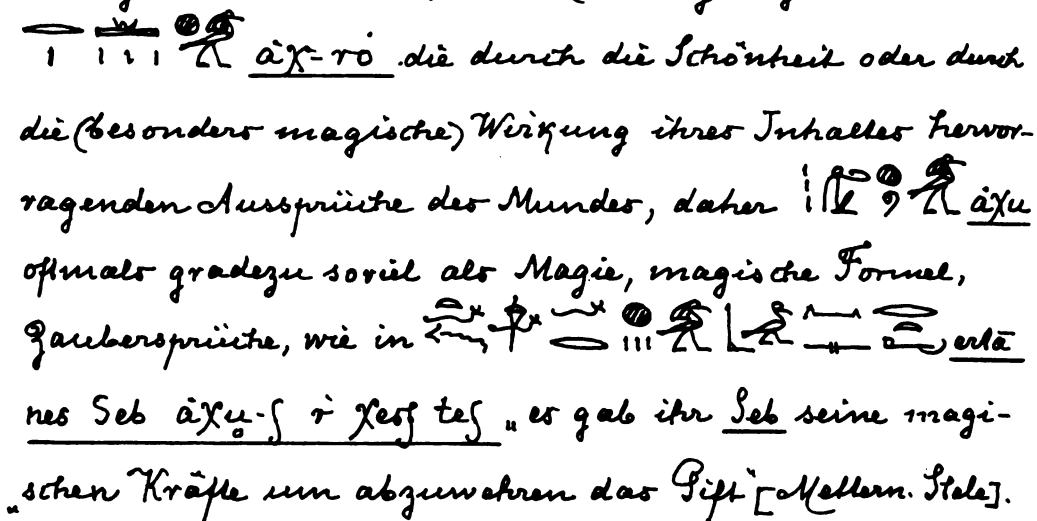 ȧχ-rȯ die durch die Schönheit oder durch
die (besonders magische) Wirkung ihres Inhaltes hervor-
ragenden Aussprüche des Mundes, daher ȧχu
oftmals gradezu soviel als Magie, magische Formel,
Zaubersprüche, wie in ertā
nes Seb ȧχu-f r χesf tef „es gab ihr Seb seine magi-
„schen Kräfte um abzuwehren das Gift" [Mettern. Stele].